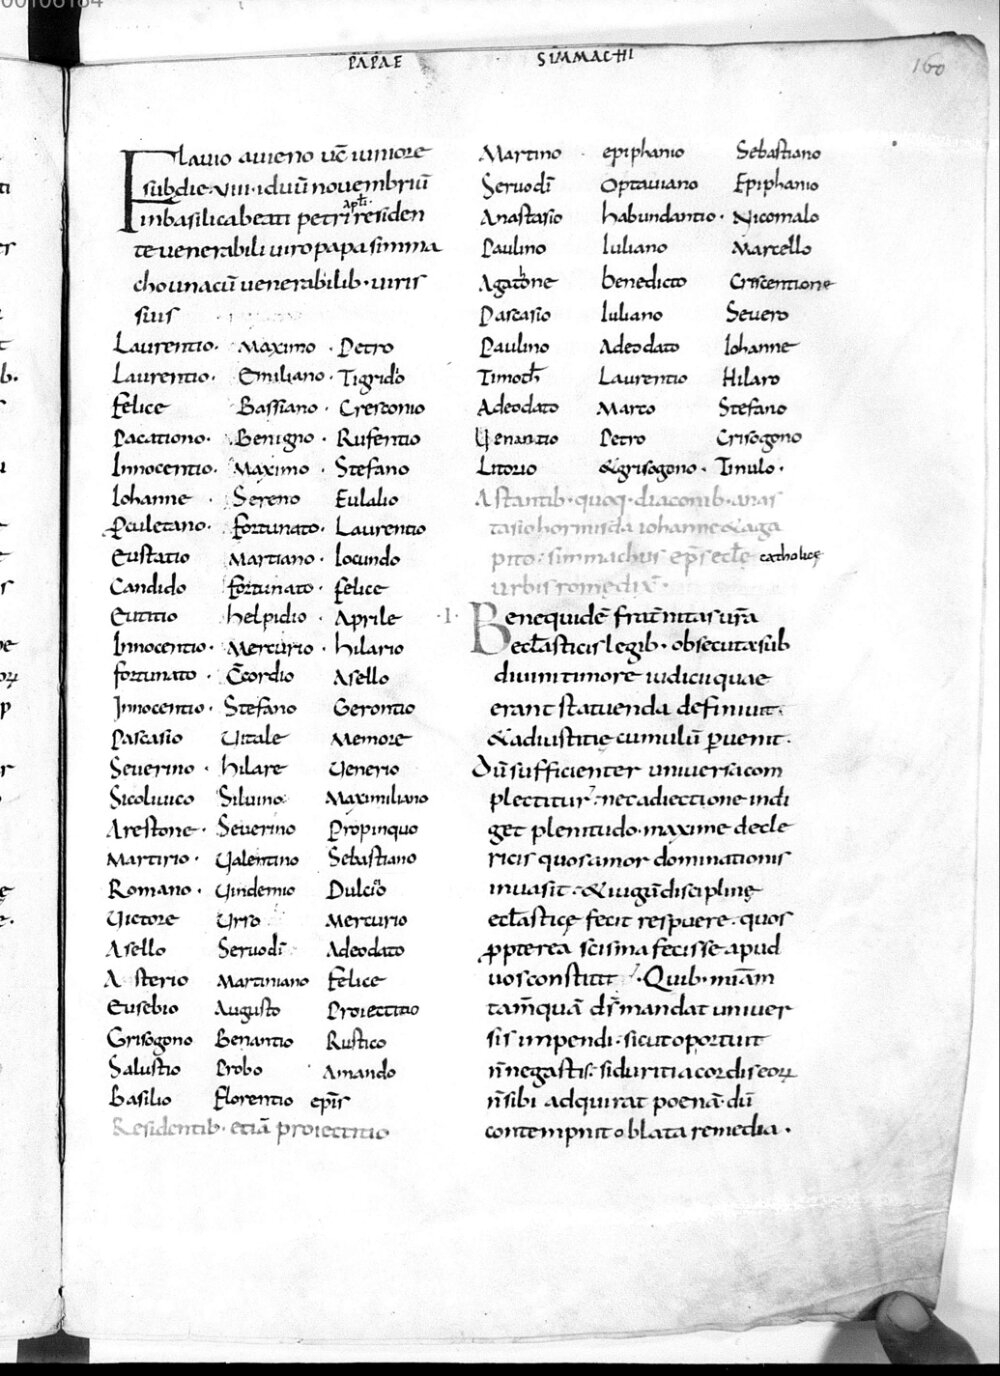 PAPAE SIMMACHI
160
Flauio auieno uc̄ iuniore
sub die·VIII·iduū nouembriū
in basilica beati petri apl̄i residen
te uenerabili uiro papa simma
cho una cū uenerabilib·uiris
suis
Laurentio· Maximo · Petro
Laurentio· Emiliano · Tigrido
felice Bassiano · Cresconio
Pacationo· Benigno · Rufentio
Innocentio· Maximo · Stefano
Iohanne · Sereno Eulalio
Peuletano· fortunato· Laurentio
Eustatio Martiano · Iocundo
Candido fortunato · felice
Eutitio helpidio · Aprile
Innocentio· Mercurio · hilario
fortunato · Asello
Innocentio· Stefano Gerontio
Pascasio Uitale Memore
Seuerino · hilare Uenerio
Sicoluuico Siluino Maximiliano
Arestone· Seuerino Propinquo
Martirio· Ualentino Sebastiano
Romano · Uindemio Dulcio
Uictore Urso Mercurio
Asello Seruodī Adeodato
Asterio Martiniano Felice
Eusebio Augusto Proiectitio
Grisogono Benantio Rustico
Salustio Probo Amando
Basilio Florentio ep̄is
Residentib· etiā proiectitio
Martino · epiphanio Sebastiano
Seruodī Optauiano Epiphanio
Anastasio habundantio· Nicomalo
Paulino Iuliano Marcello
Agatone benedicto Crescentione
Pascasio Iuliano Seuero
Paulino Adeodato Iohanne
Timoth̄ Laurentio Hilaro
Adeodato Marco Stefano
Uenantio Petro Crisogono
Litorio &grisogono· Tinulo·
Astantib·quoq·diaconib·anas
tasio hormisda iohanne & aga
pito· simmachus ep̄s eccl̄e catholicę
urbis rome dix̄·
·I· Bene quidē frat̄nitas ur̄a
eccl̄asticis legib· obsecuta sub
diuini timore iudicii quae
erant statuenda definiuit·
& ad iustitię cumulū ꝑuenit·
Dū sufficienter uniuersa com
plectitur· nec adiectione indi
get plenitudo· maxime de cle
ricis quos amor dominationis
inuasit· & iugū disciplinę
eccl̄asticę fecit respuere· quos
ꝓpterea scisma fecisse apud
uos constitit ·Quib·mīam
tam̄ quā ds̄ mandat uniuer
sis impendi· sicut oportuit
n̄ negastis· si duritia cordis eoꝝ
n̄ sibi adquirat poenā· dū
contempnit oblata remedia·